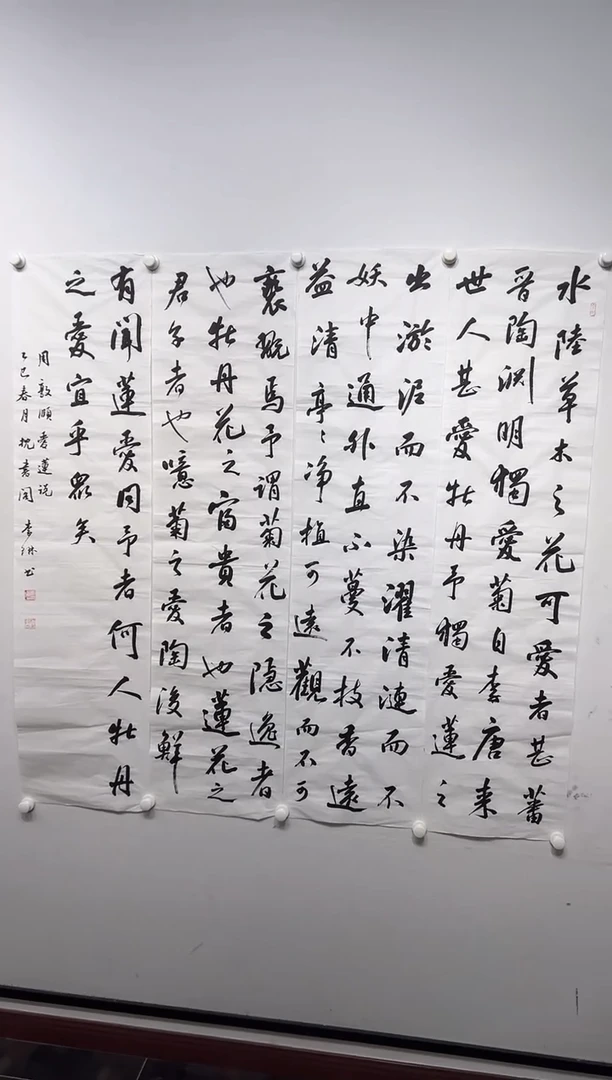 水陸草木之花可愛者甚蕃
晉陶渊明獨愛菊自李唐来
世人甚愛牡丹予獨愛蓮之
出淤泥而不染濯清漣而不
妖中通外直不蔓不枝香遠
益清亭〻净植可遠觀而不可
褻翫焉予謂菊花之隱逸者
也牡丹花之富貴者也蓮花之
君子者也噫菊之愛陶後鮮
有聞蓮愛同予者何人牡丹
之愛宜乎眾矣
周敦頤愛蓮説
乙巳春月 書 李 书